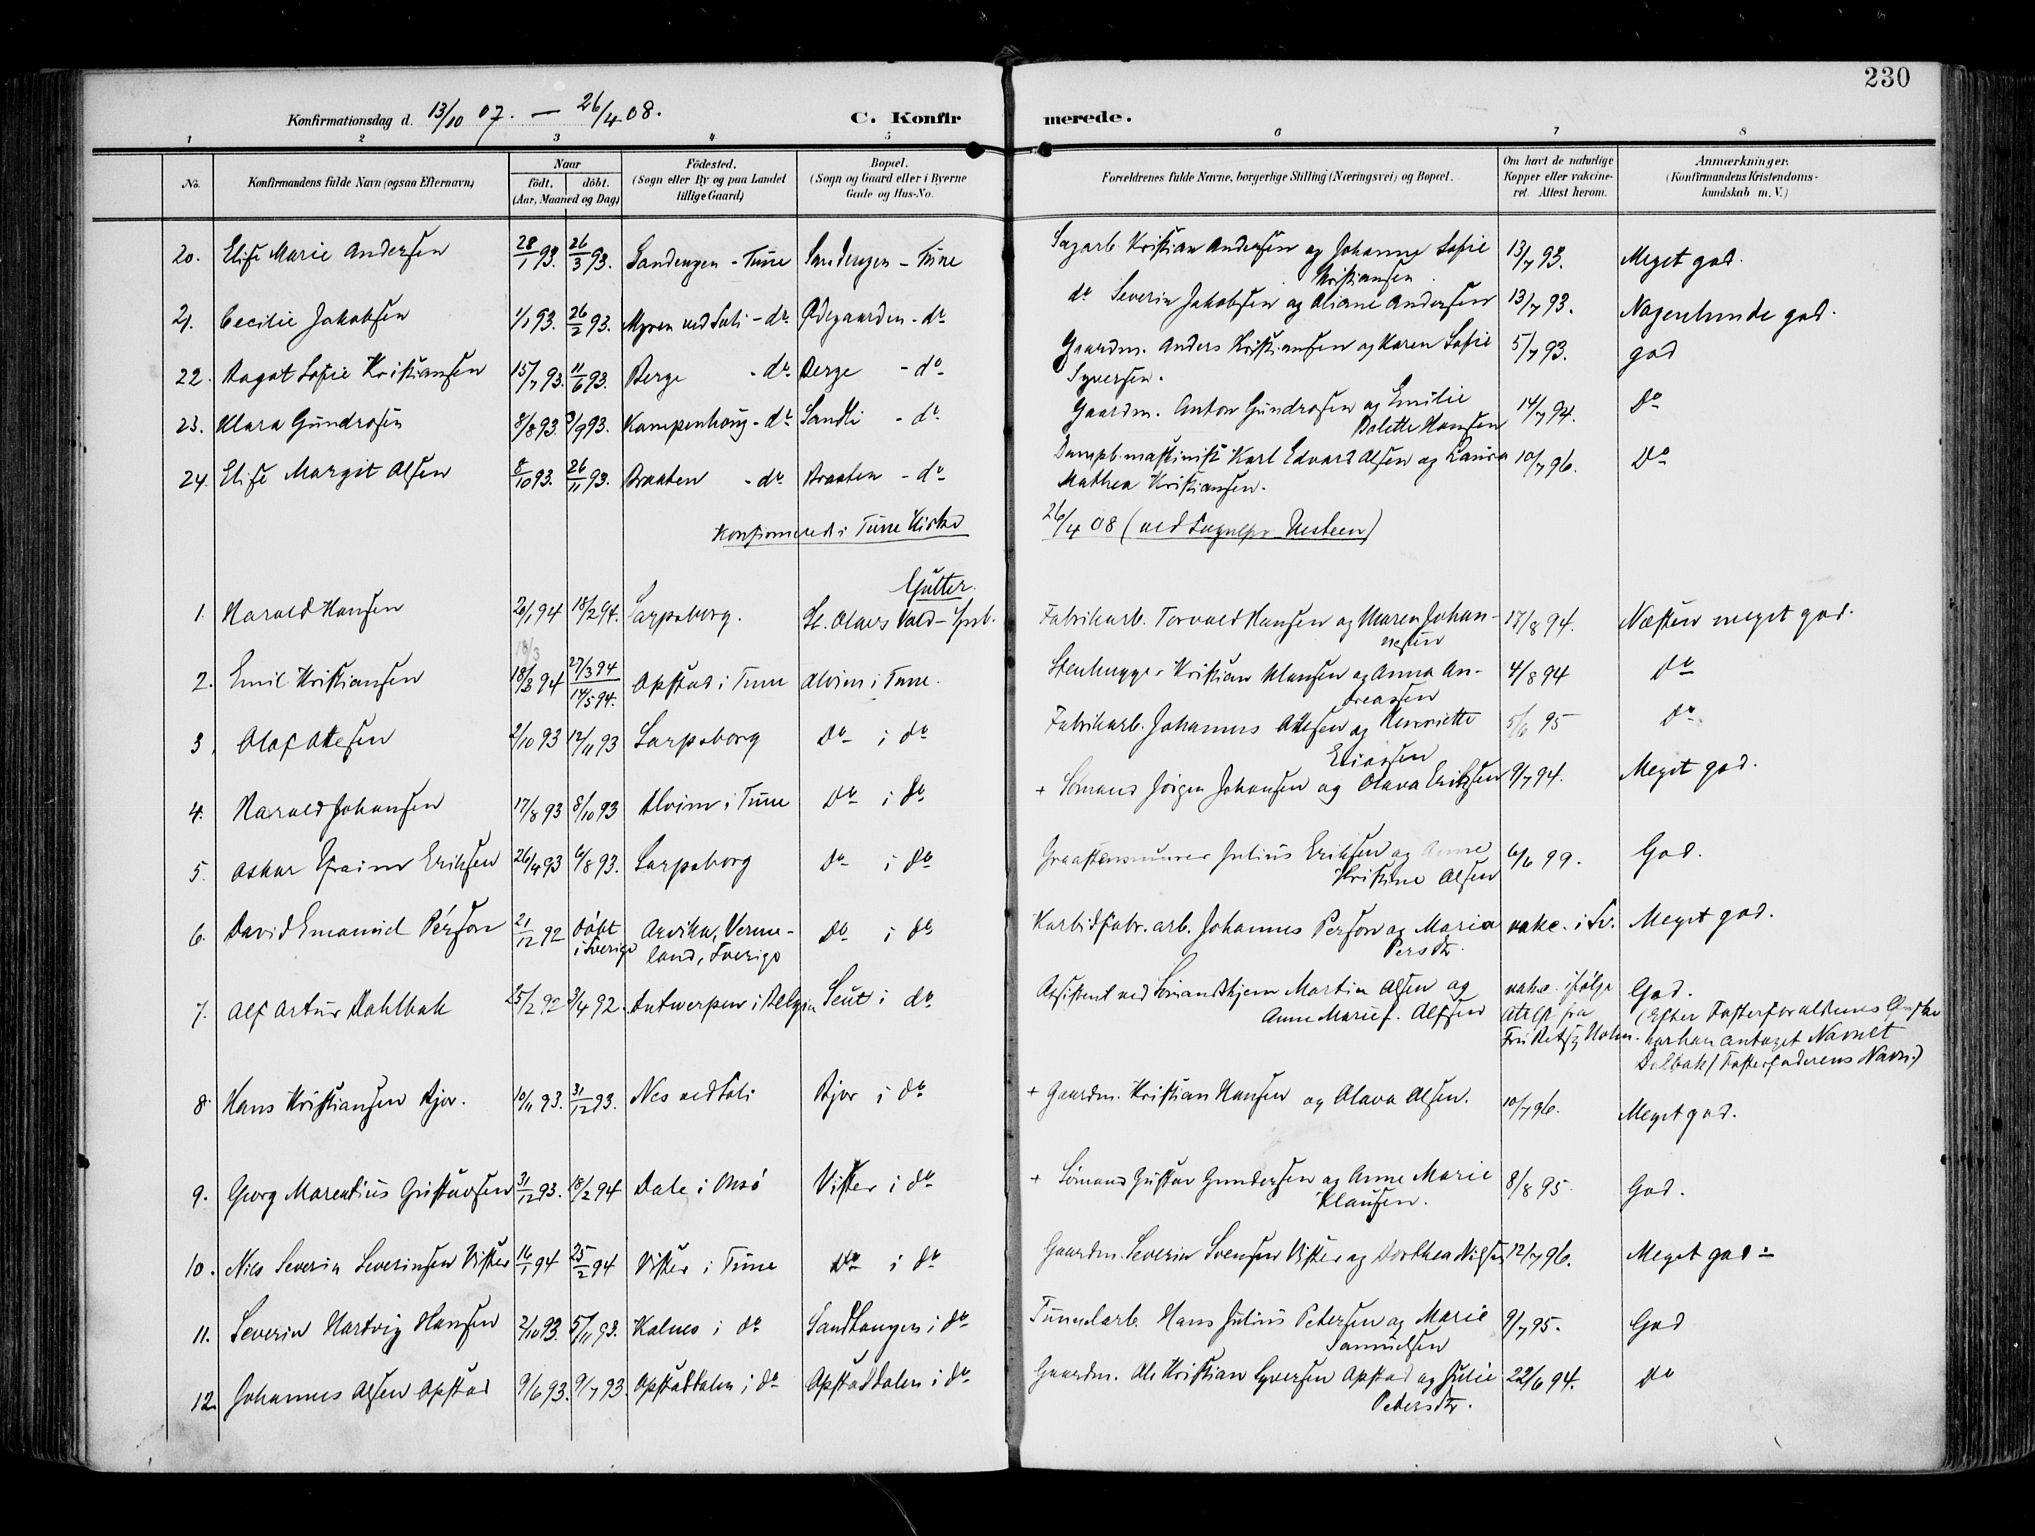 230
Konfirmationsdag d. 13/10 07. — 26/4 08. C. Konfirmerede.
1 2 3 4 5 6 7 8
No. Konfirmandens fulde Navn (ogsaa Efternavn) Naar födt. döbt. (Aar, Maaned og Dag) Födested. (Sogn eller By og paa Landet tillige Gaard) Bopæl. (Sogn og Gaard eller i Byerne Gade og Hus-No. Forældrenes fulde Navne, borgerlige Stilling (Næringsvei) og Bopæl. Om havt de naturlige Kopper eller vakcineret. Attest herom. Anmærkninger. (Konfirmandens Kristendomskundskab m. V.)
20. Elise Marie Andersen 28/1 93. 26/3 93. Sandengen - Tune Sandengen - Tune Sagarb. Kristian Andersen og Johanne Sofie Kristiansen 13/7 93. Meget god.
21. Cecilie Jakobsen 1/1 93. 26/2 93. Myren ved Soli - do Ødegaarden - do do Severin Jakobsen og Oliane Andersen 13/7 93. Nogenlunde god.
22. Dagot Sofie Kristiansen 11/6 93. Berge - do Berge - do Gaardm. Anders Kristiansen og Karen Sofie Syversen. 5/7 93. god
23. Klara Gundrosen 8/8 93. 3/9 93. Kampenhoug - do Sandli - do Gaardm. Anton Gundrosen og Emilie Bolette Hansen 14/7 94. Do
24. Elise Margit Olsen 8/10 93. 26/11 93. Braaten - do Braaten - do Dampb.maskinist Karl Edvard Olsen og Laura Mathea Kristiansen. 10/7 96. Do
Konfirmeret i Tune Kirke 26/4 08 (ved Sognepr.
Gutter.
1. Harald Hansen 20/1 94 18/2 94. Sarpsborg. St. Olavs Vold - Fabrikarb. Torvald Hansen og Maren Johannesen 17/8 94. Næsten meget god.
2. Emil Kristiansen 18/3 94 27/3 94 14/5 94. Opstad i Tune Alvim i Tune. Stenhugger Kristian Klausen og Anna Andreassen 4/8 94 do
3. Olaf Ottesen 2/10 93 12/11 93 Sarpsborg Do i do Fabrikarb. Johannes Ottesen og Henriette Eliassen 5/6 95 do
4. Harald Johansen 17/8 93 8/10 93 Alvim i Tune Do i do + Sømand Jørgen Johansen og Olava Eriksen 9/7 94. Meget god.
5. Oskar Efraim Eriksen 26/4 93 6/8 93. Sarpsborg do i do Graastensmurer Julius Eriksen og Anne Kristine Olsen 6/6 99. God.
6. David Emanuel Persson 21/12 92 Døbt i Sverige Arvika, Vermeland, Sverige do i do Karbidfabr. arb. Johannes Person og Maria Persdtr. vakc. i Sv. Meget god.
7. Alf Artur Dahlbak 25/2 92 3/4 92. Antwerpen i Belgien Seut i do Assistent ved Sømandshjem Martin Olsen og Anne Marie f. Alfsen vakc. ifølge Attest fra God. (Efter Fosterforældrenes Ønske har han antaget Navnet Dalbak / Fosterfaderens Navn.)
8. Hans Kristiansen Bjor. 10/11 93. 31/12 93. Nes ved Soli Bjor i do + Gaardm. Kristian Hansen og Olava Olsen. 10/7 96. Meget god.
9. Georg Marentius Gustavsen 31/12 93. 18/2 94 Dale i Onsø Vister i do + Sømand Gustav Gundersen og Anne Marie Klausen. 8/8 95. God.
10. Nils Severin Severinsen Vister 16/1 94 25/2 94 Vister i Tune Do i do Gaardm. Severin Svensen Vister og Dorthea Nilsen 12/7 96. Meget god -
11. Severin Hartvig Hansen 2/10 93. 5/11 93. Kalnes i do Sandtangen i do Tunnelarb. Hans Julius Petersen og Marie Samuelsen 9/7 95. God
12. Johannes Olsen Opstad 9/6 93. 9/7 93. Opstaddalen i do Opstaddalen i do Gaardm. Ole Kristian Syversen Opstad og Julie Petersdtr. 22/6 94. do